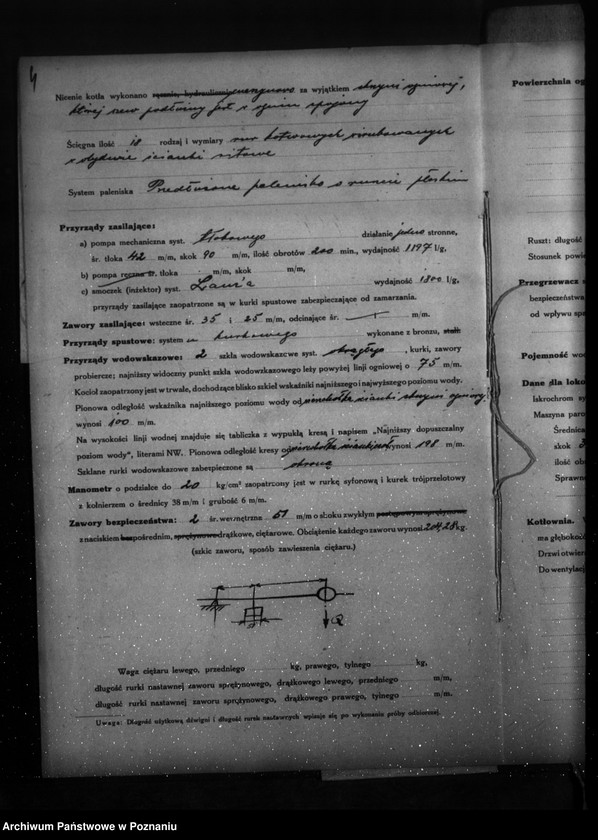 4
Nicenie kotła wykonano ręcznie, hydraulicznie maszynowo za wyjątkiem
której szew podłużny jest
Ścięgna ilość 18 rodzaj i wymiary
System paleniska palenisko płaskim
Przyrządy zasilające:
a) pompa mechaniczna syst. tłokowego działanie jedno stronne,
śr. tłoka 42 m/m, skok 90 m/m, ilość obrotów 200 min., wydajność 1197 l/g,
b) pompa ręczna śr. tłoka m/m, skok m/m,
c) smoczek (inżektor) syst. wydajność 1800 l/g,
przyrządy zasilające zaopatrzone są w kurki spustowe zabezpieczające od zamarzania.
Zawory zasilające: wsteczne śr. 35 i 25 m/m, odcinające śr. m/m.
Przyrządy spustowe: system kurkowego wykonane z bronzu, stali
Przyrządy wodowskazowe: 2 szkła wodowskazowe syst. okrągłego, kurki, zawory
probiercze; najniższy widoczny punkt szkła wodowskazowego leży powyżej linji ogniowej o 75 m/m.
Kocioł zaopatrzony jest w trwałe, dochodzące blisko szkieł wskaźniki najniższego i najwyższego poziomu wody.
Pionowa odległość wskaźnika najniższego poziomu wody od wierzchołka ścianki skrzyni ogniowej
wynosi 100 m/m.
Na wysokości linji wodnej znajduje się tabliczka z wypukłą kresą i napisem „Najniższy dopuszczalny
poziom wody", literami NW. Pionowa odległość kresy od wierzchołka wynosi 198 m/m.
Szklane rurki wodowskazowe zabezpieczone są
Manometr o podziałce do 20 kg/cm² zaopatrzony jest w rurkę syfonową i kurek trójprzelotowy
z kołnierzem o średnicy 38 m/m i grubość 6 m/m.
Zawory bezpieczeństwa: 2 śr. wewnętrzna 51 m/m o skoku zwykłym
z naciskiem bezpośrednim, sprężynowe drążkowe, ciężarowe. Obciążenie każdego zaworu wynosi 204,28 kg.
(szkic zaworu, sposób zawieszenia ciężaru.)
Q
Waga ciężaru lewego, przedniego kg, prawego, tylnego kg,
długość rurki nastawnej zaworu sprężynowego, drążkowego lewego, przedniego m/m,
długość rurki nastawnej zaworu sprężynowego, drążkowego prawego, tylnego m/m.
Uwaga: Długość użytkową dźwigni i długość rurek nastawowych wpisuje się po wykonaniu próby odbiorczej.
Powierzchnia og
Ruszt: długość
Stosunek powie
Przegrzewacz
bezpieczeństwa
od wpływu spa
Pojemność wod
Dane dla loko
Iskrochron sy
Maszyna paro
Średnica
skok
ilość ob
Sposób
Kotłownia.
ma głębokoś
Drzwi otwier
Do wentylacj
Archiwum Państwowe w Poznaniu